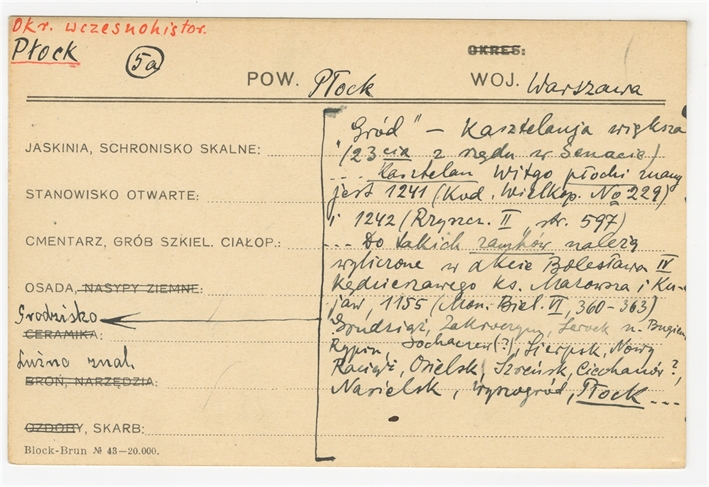 Okr. wczesnohistor.
Płock
5a
OKRES:
POW. Płock
WOJ. Warszawa
JASKINIA, SCHRONISKO SKALNE:
STANOWISKO OTWARTE:
CMENTARZ, GRÓB SZKIEL. CIAŁOP.:
OSADA, NASYPY ZIEMNE:
Grodzisko
CERAMIKA:
Luźno znal.
BROŃ, NARZĘDZIA:
OZDOBY, SKARB:
Block-Brun № 43—20.000.
"Gród" — Kasztelanja większa
(23cia z rzędu w Senacie)
... Kasztelan Witgo płocki znany
jest 1241 (Kod. Wielkop. No 229)
i 1242 (Rzyszcz. II str. 597)
... Do takich zamków należą
wyliczone w akcie Bolesława IV
Kędzierzawego ks. Mazowsza i Ku-
jaw, 1155 (Mon. Biel. VI, 360-363)
Grudziąż, Zakroczym, Serock n. Bugiem
Rypin, Sochaczew(?), Sierpsk, Nowy
Raciąż, Osielsk, Szreńsk, Ciechanów?,
Nasielsk, Wyszogród, Płock ...